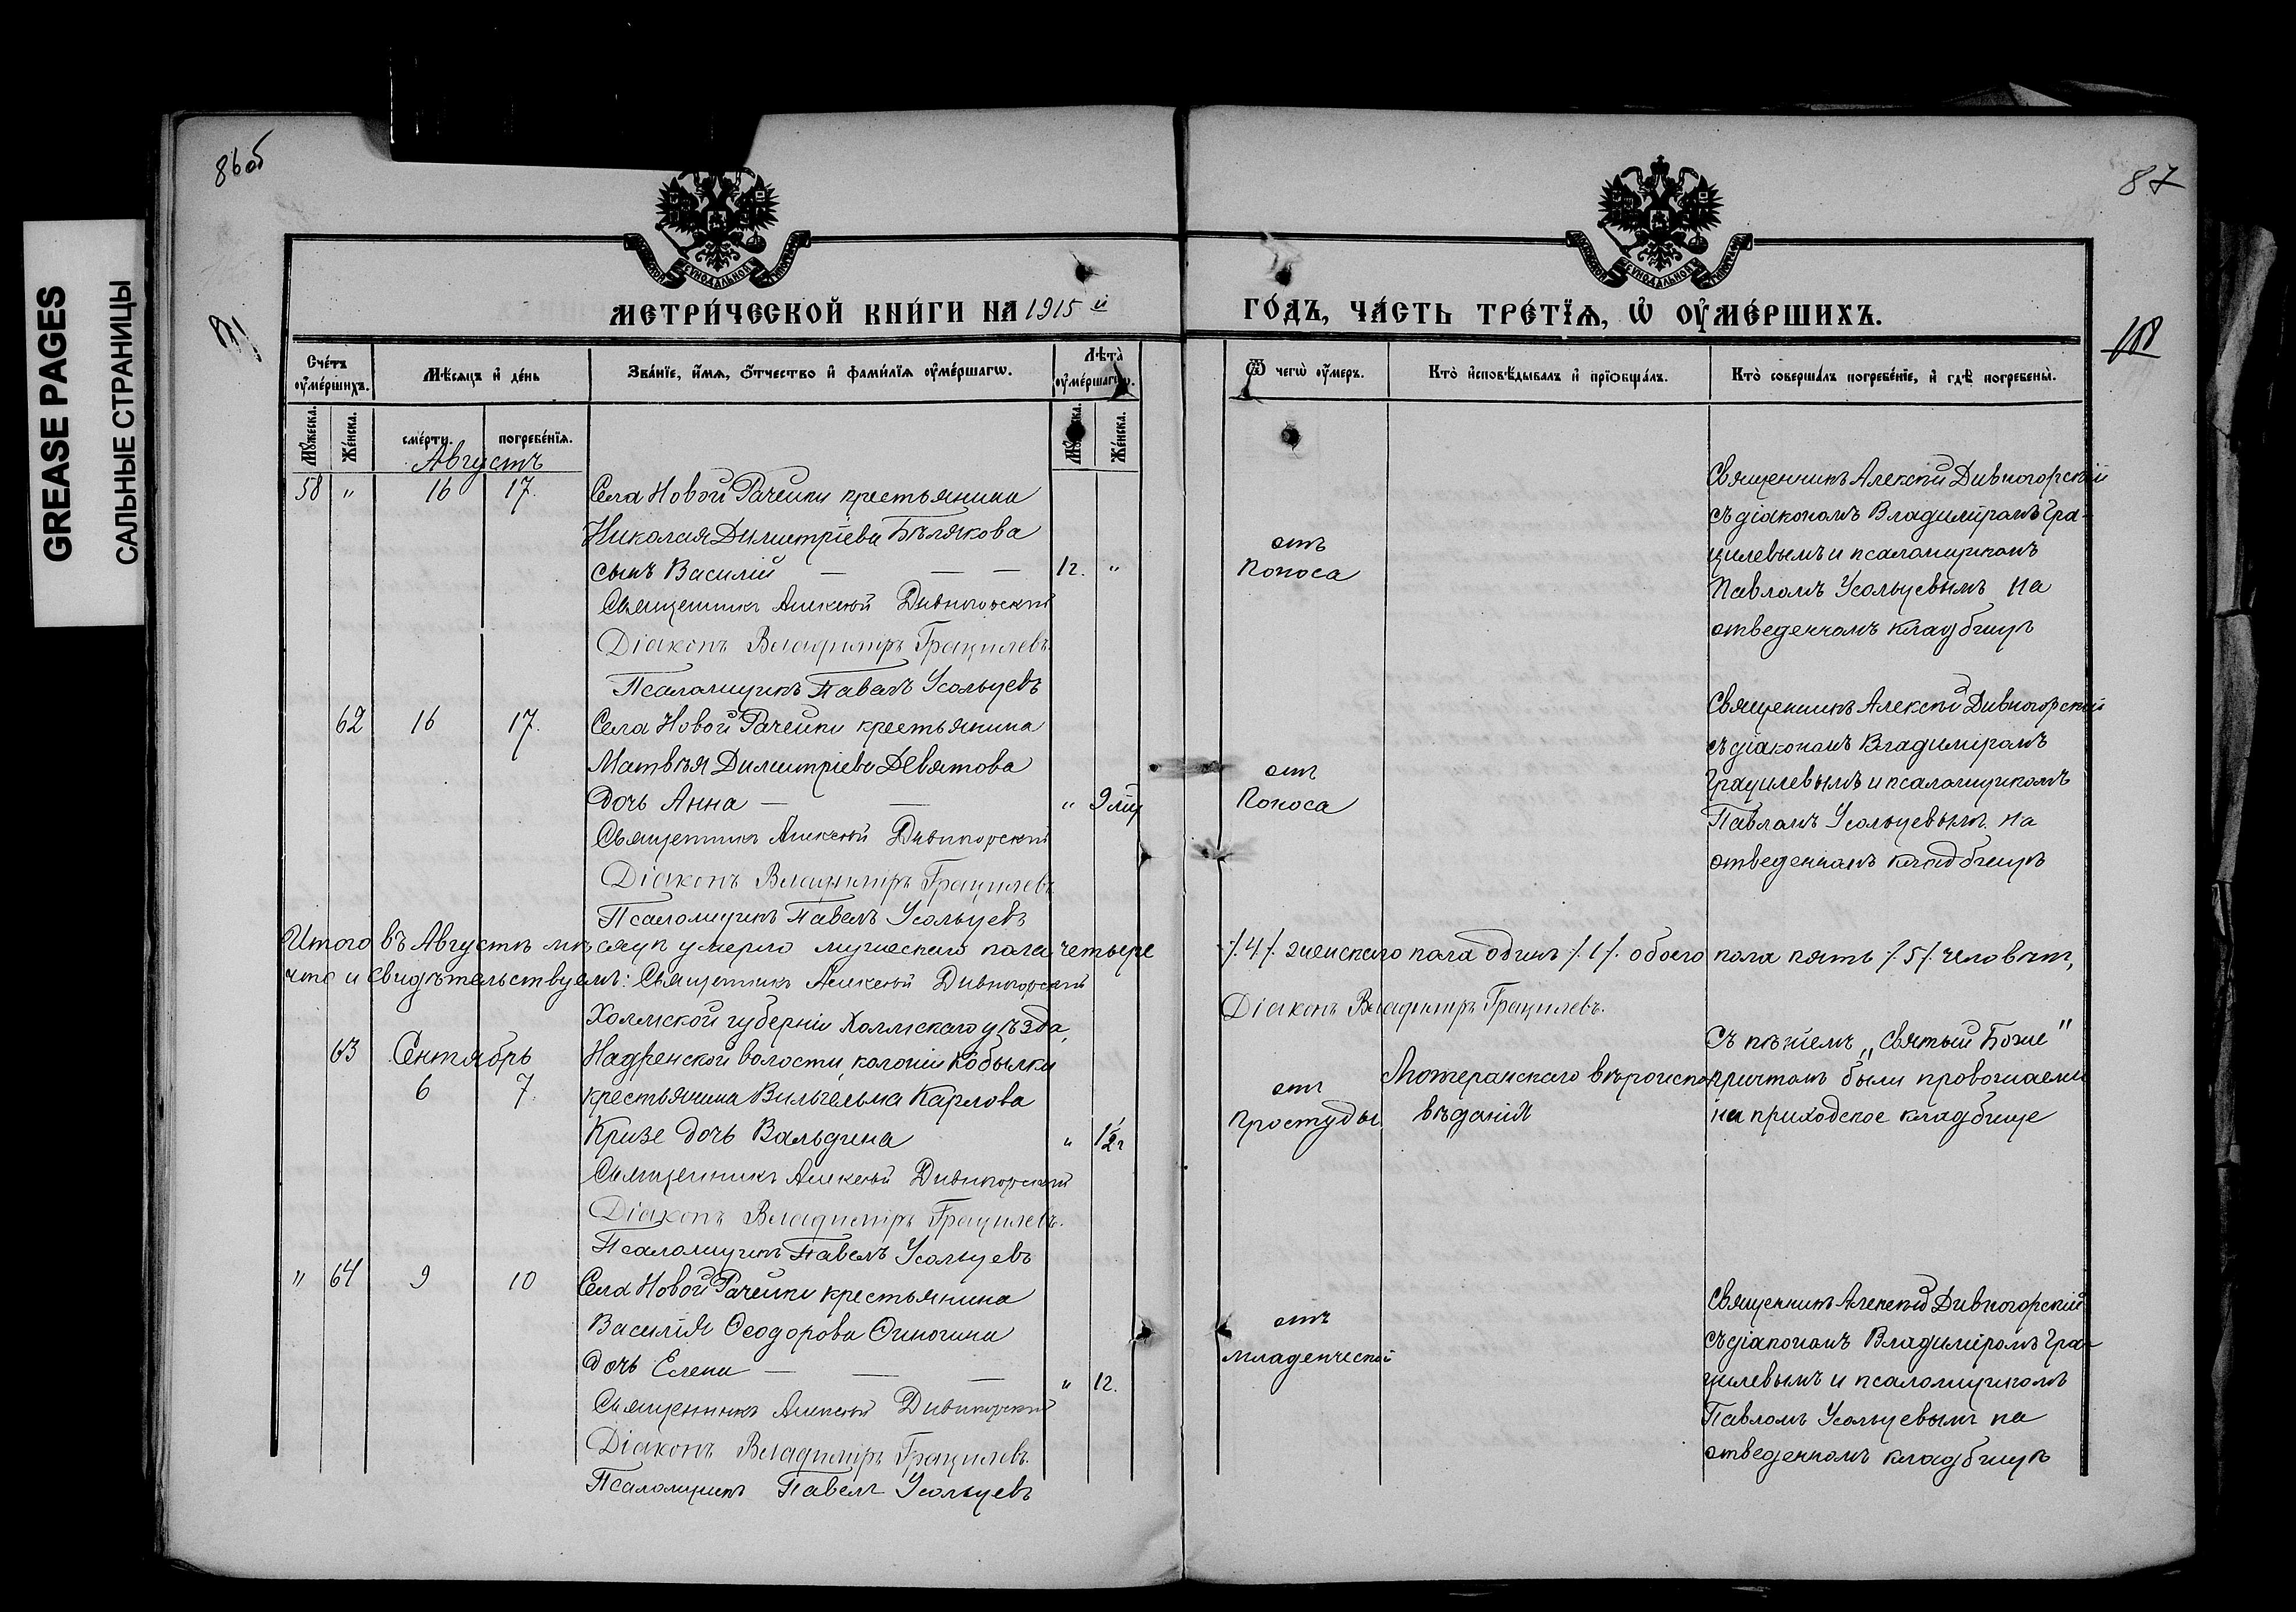 GREASE PAGES
САЛЬНЫЕ СТРАНИЦЫ
86об
87
МЕТРИ́ЧЕСКОЙ КНИ́ГИ НА 1915й
ГО́ДЪ, ЧА́СТЬ ТРЕ́ТЇѦ, Ѡ҆ ОУ҆МЕ́РШИХЪ.
Сче́тъ оу҆ме́ршихъ.
Мѣ́сѧцъ и҆ де́нь
Зва́нїе, и҆́мѧ, ѻ҆́тчество и҆ фами́лїѧ оу҆ме́ршагѡ.
Лѣ́та оу҆ме́ршагѡ.
Ѿ чегѡ̀ оу҆́меръ.
Кто̀ и҆сповѣ́дывалъ и҆ прїѡбща́лъ.
Кто̀ соверша́лъ погребе́нїе, и҆ гдѣ̀ погребены̀.
Мꙋ́жеска.
Же́нска.
сме́рти.
погребе́нїѧ.
Же́нска.
Августъ
58 " 16 17. Села Новой Рачейки крестьянина
Николая Димитріева Бѣлякова
сынъ Василій — — — 1г. "
Священникъ Алексій Дивногорскій
Діаконъ Владиміръ Грацилевъ.
Псаломщикъ Павелъ Усольцевъ
отъ
поноса
Священникъ Алексій Дивногорскій
съ діакономъ Владиміромъ Гра-
цилевымъ и псаломщикомъ
Павломъ Усольцевымъ на
отведенномъ кладбищѣ
62 16 17. Села Новой Рачейки крестьянина
Матвѣя Димитріева Девятова
дочь Анна — — " 9 мц
Священникъ Алексій Дивногорскій
Діаконъ Владиміръ Грацилевъ
Псаломщикъ Павелъ Усольцевъ
отъ
поноса
Священникъ Алексій Дивногорскій
съ діакономъ Владиміромъ
Грацилевымъ и псаломщикомъ
Павломъ Усольцевымъ на
отведенномъ кладбищѣ
Итого въ Августѣ мѣсяцѣ умерло мужескаго пола четыре /4/. женскаго пола одинъ /1/. обоего пола пять /5/. человѣкъ,
что и свидѣтельствуемъ: Священникъ Алексій Дивногорскій
Діаконъ Владиміръ Грацилевъ.
Холмской губерніи Холмскаго уѣзда,
63 Сентябрь волости, колоніи Кобылки
6 7. крестьянина Вильгельма Карлова
Кризе дочь Вальдина " 1½г
Священникъ Алексій Дивногорскій
Діаконъ Владиміръ Грацилевъ.
Псаломщикъ Павелъ Усольцевъ
отъ
простуды.
Лютеранскаго вѣроиспо-
вѣданія
Съ пѣніемъ „Святый Боже"
причтомъ были провожаемы
на приходское кладбище
" 64 9 10 Села Новой Рачейки крестьянина
Василія Ѳеодорова
дочь Елена — — — " 1г.
Священникъ Алексій Дивногорскій
Діаконъ Владиміръ Грацилевъ.
Псаломщикъ Павелъ Усольцевъ
отъ
младенческой
Священникъ Алексій Дивногорскій
съ діакономъ Владиміромъ Гра-
цилевымъ и псаломщикомъ
Павломъ Усольцевымъ на
отведенномъ кладбищѣ